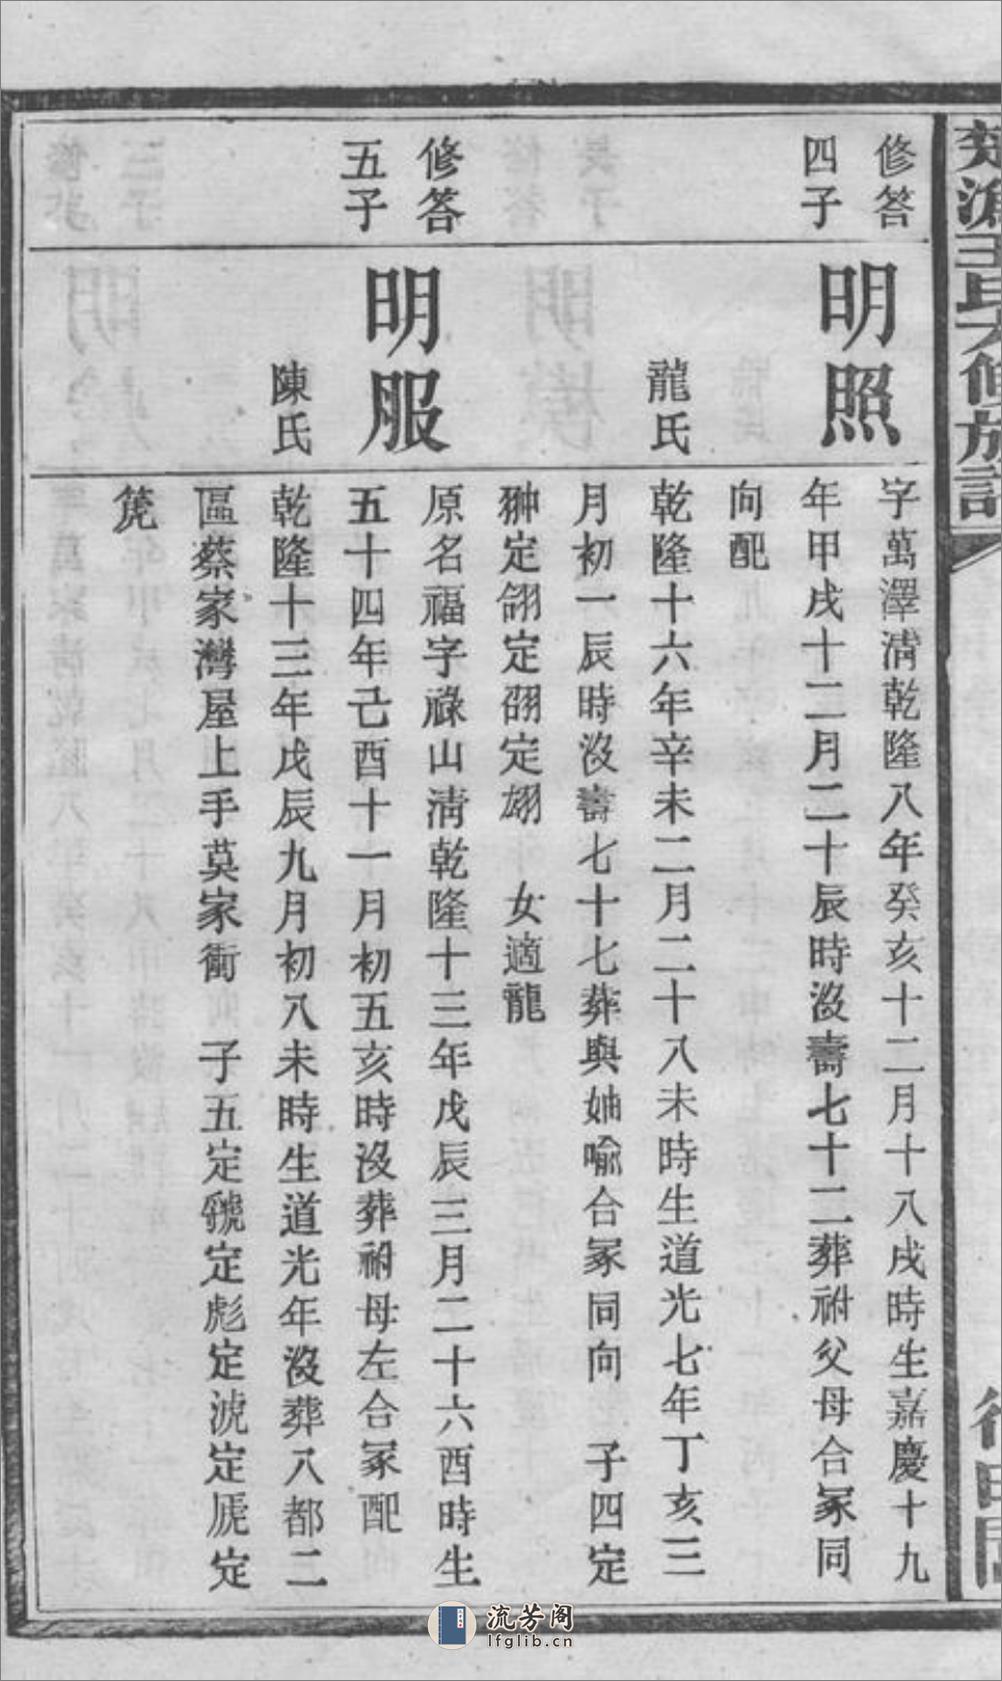 楚溈王氏六修族譜
修答
四子
明照
字萬澤清乾隆八年癸亥十二月十八戌時生嘉慶十九
年甲戌十二月二十辰時沒壽七十二葬祔父母合冢同
向配
龍氏
乾隆十六年辛未二月二十八未時生道光七年丁亥三
月初一辰時沒壽七十七葬與妯喻合冢同向 子四定
翀定翎定翮定翃 女適龍
修答
五子
明服
原名福字祿山清乾隆十三年戊辰三月二十六酉時生
五十四年己酉十一月初五亥時沒葬祔母左合冢配
陳氏
乾隆十三年戊辰九月初八未時生道光年沒葬八都二
區蔡家灣屋上手莫家衝 子五定虢定彪定淲定虒定
箎
流芳阁
lfglib.cn